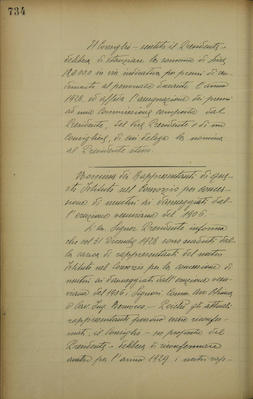 734
Il Consiglio - sentito il Presidente -
delibera di stanziare la somma di lire
120.000 in via indicativa per premi di
al personale durante l'anno
1928, ed affida l'assegnazione dei premi
ad una Commissione composta dal
Presidente, dal Vice Presidente e di un
Consigliere, di cui delega la nomina
al Presidente stesso.
Nomina di Rappresentanti di que-
sto Istituto nel Consorzio per conces-
sione di mutui ai danneggiati dal-
l'eruzione vesuviana del 1906.
Il Signor Presidente informa
che col 31 Dicembre 1928 sono scaduti dal-
la carica di rappresentanti del nostro
Istituto nel Consorzio per la concessione di
mutui ai danneggiati dall'eruzione vesu-
viana del 1906, i Signori
rappresentanti possono essere riconfer-
mati, il Consiglio - su proposta del
Presidente - delibera di riconfermare
anche per l'anno 1929 i nostri rap-